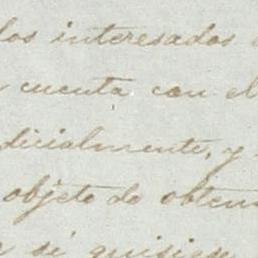 los interesados
cuenta con el
dicialmente, y
objeto de obten
si quisiese